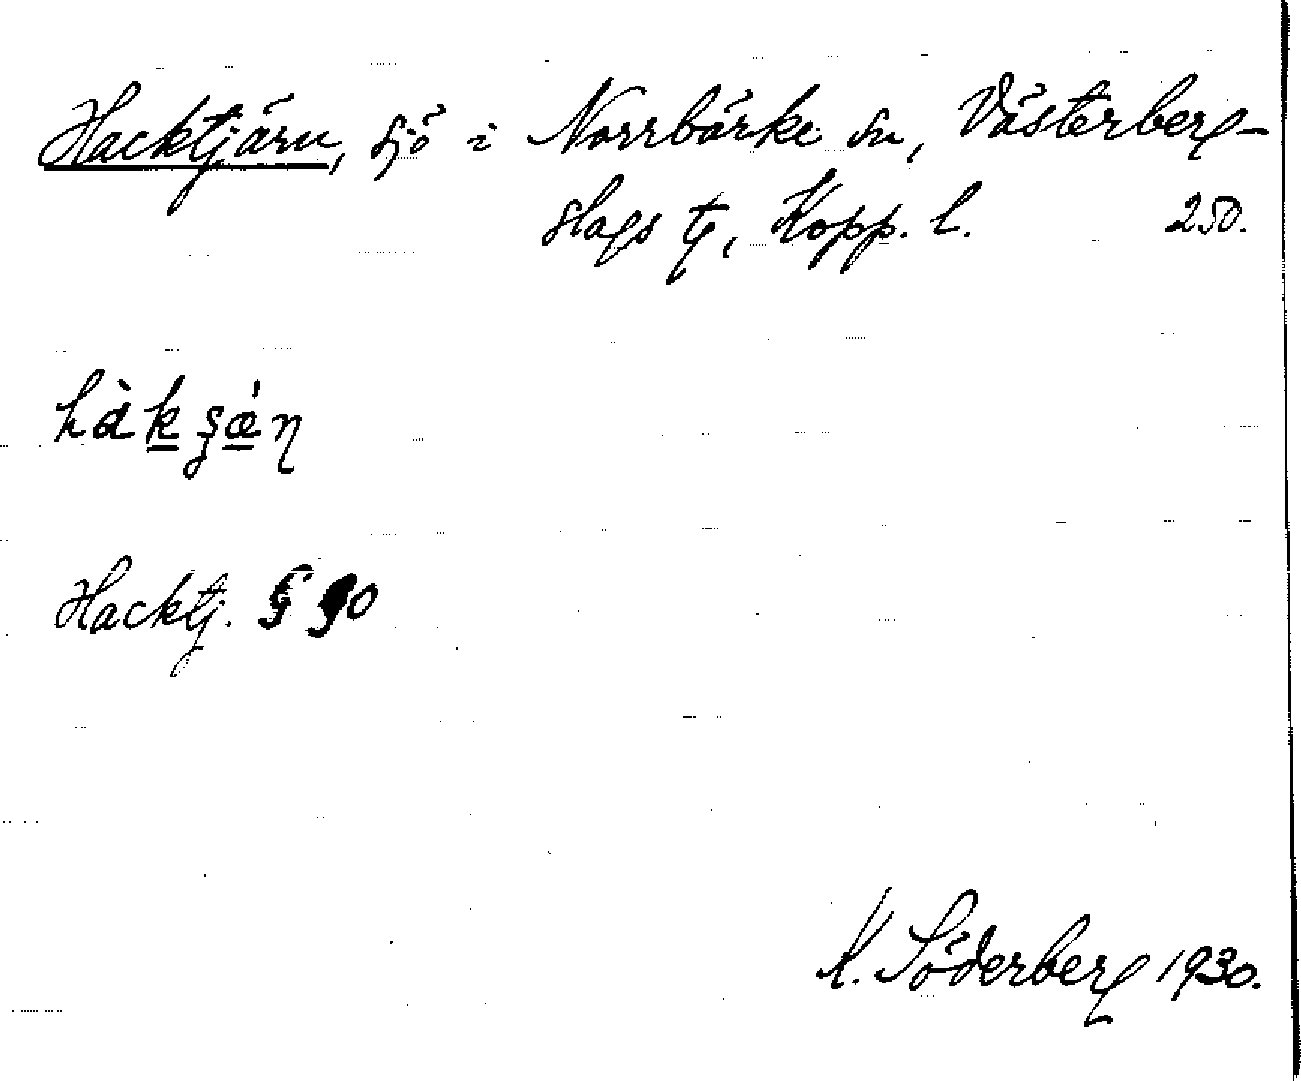 Hacktjärn, sjö i Norrbärke sn, Västerberg-
slags tg, Kopp. l. 250.
Hacktj. G 90
K. Söderberg 1930.